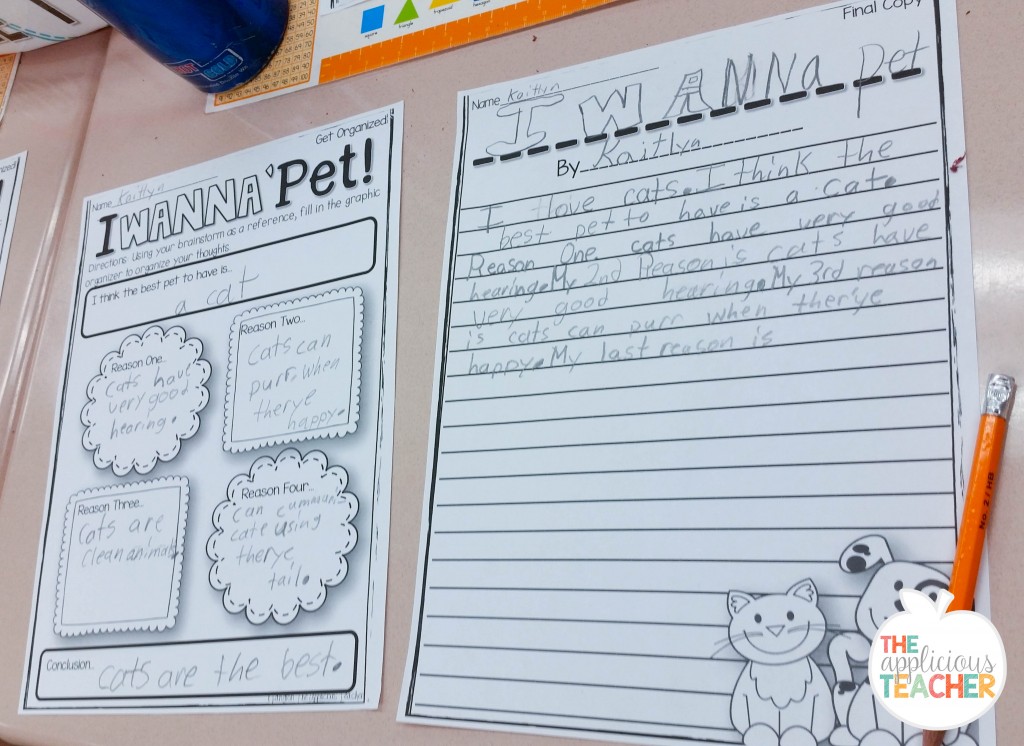 Get Organized!
Name Kaitlyn
I WANNA Pet!
Directions: Using your brainstorm as a reference, fill in the graphic
organizer to organize your thoughts
I think the best pet to have is...
a cat
Reason One...
cats have
very good
hearing.
Reason Two...
cats can
purr when
therye
happy.
Reason Three...
cats are
clean animals
Reason Four...
can communi
cate using
therye
tail.
Conclusion...
cats are the best.
Final Copy
Name Kaitlyn
I WANNa Pet
By Kaitlyn
I love cats. I think the
best pet to have is a cat.
Reason One cats have very good
hearing. My 2nd Reason is cats have
very good hearing. My 3rd reason
is cats can purr when ther'ye
happy. My last reason is
No. 2 / HB
THE
applicious
TEACHER
square
triangle